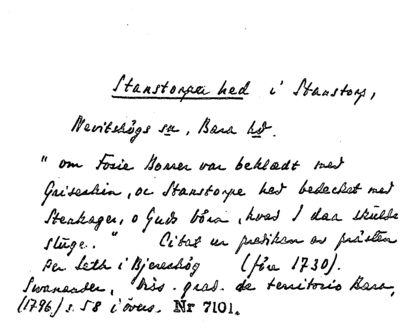 Stanstorpe hed i Stanstorp,
Nevitshögs sn, Bara hd.
" om Fosie Borrer var beklædt med
Gaiseskin, oc Stanstorpe hed bedecket med
Stenkager, o Guds börn, hvad I daa skulde
sluge." Citat ur predikan av prästen
Per Seth i Bjereshög (före 1730).
Swanander, Diss. grad. de territorio Bara,
(1796) s. 58 i övers. Nr 7101.